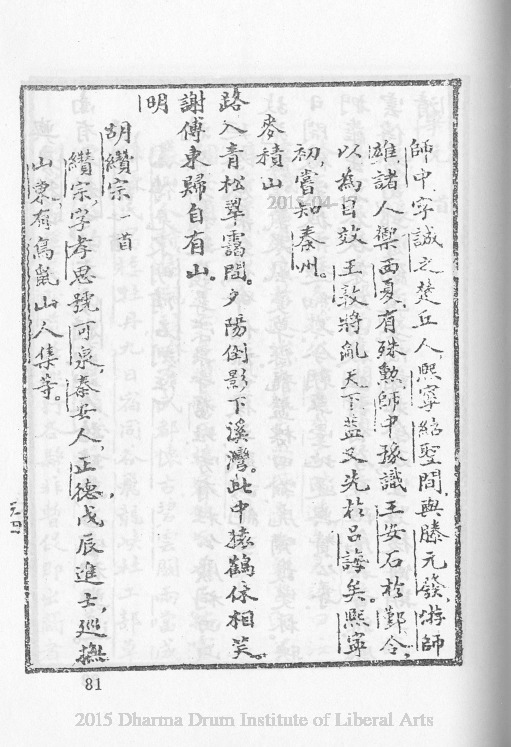 師中,字誠之,楚丘人,熙寧紹聖間,與滕元發,游師
雄,諸人禦西夏,有殊勲,師中豫識王安石於鄞令,
以為目效王敦,將亂天下,蓋又先於呂誨矣。熙寧
初,嘗知秦州。
麥積山
路入青松翠靄間。夕陽倒影下溪灣。此中猿鶴休相笑。
謝傅東歸自有山。
明
胡纘宗一首
纘宗,字孝思,號可泉,秦安人,正德戊辰進士,巡撫
山東,有鳥鼠山人集等。
一四一
81
2015-04-17
2015 Dharma Drum Institute of Liberal Arts